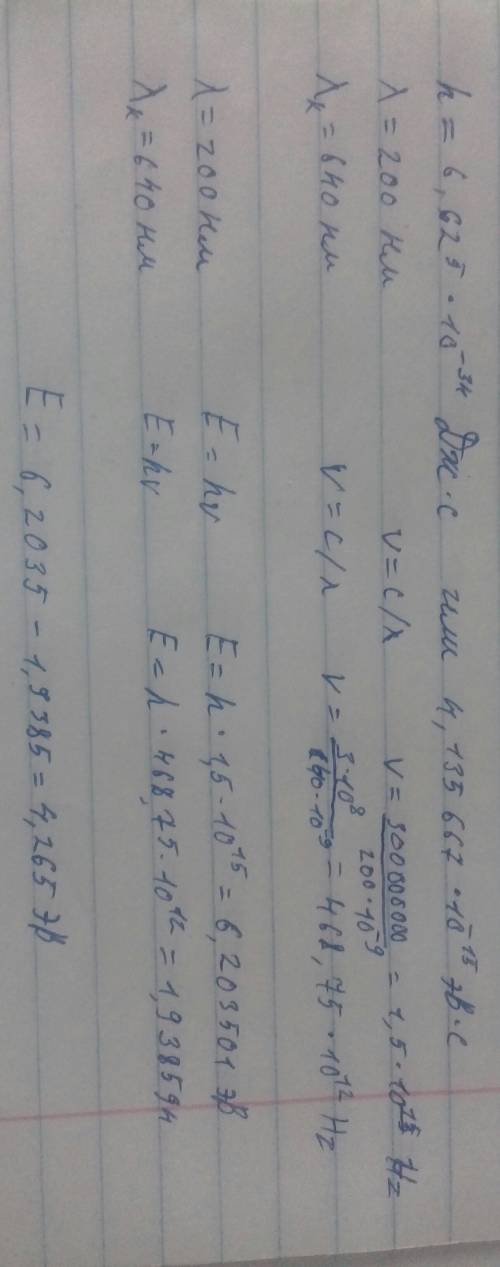 h = 6,625 · 10⁻³⁴ Дж·с или 4,135667 · 10⁻¹⁵ эВ·с
λ = 200 нм ν = c/λ ν = 300000000 / 200·10⁻⁹ = 1,5·10¹⁵ Hz
λк = 640 нм ν = c/λ ν = 3·10⁸ / 640·10⁻⁹ = 468,75·10¹² Hz
λ = 200 нм E = hν E = h · 1,5·10¹⁵ = 6,203501 эВ
λк = 640 нм E = hν E = h · 468,75·10¹² = 1,938594
E = 6,2035 − 1,9385 = 4,265 эВ